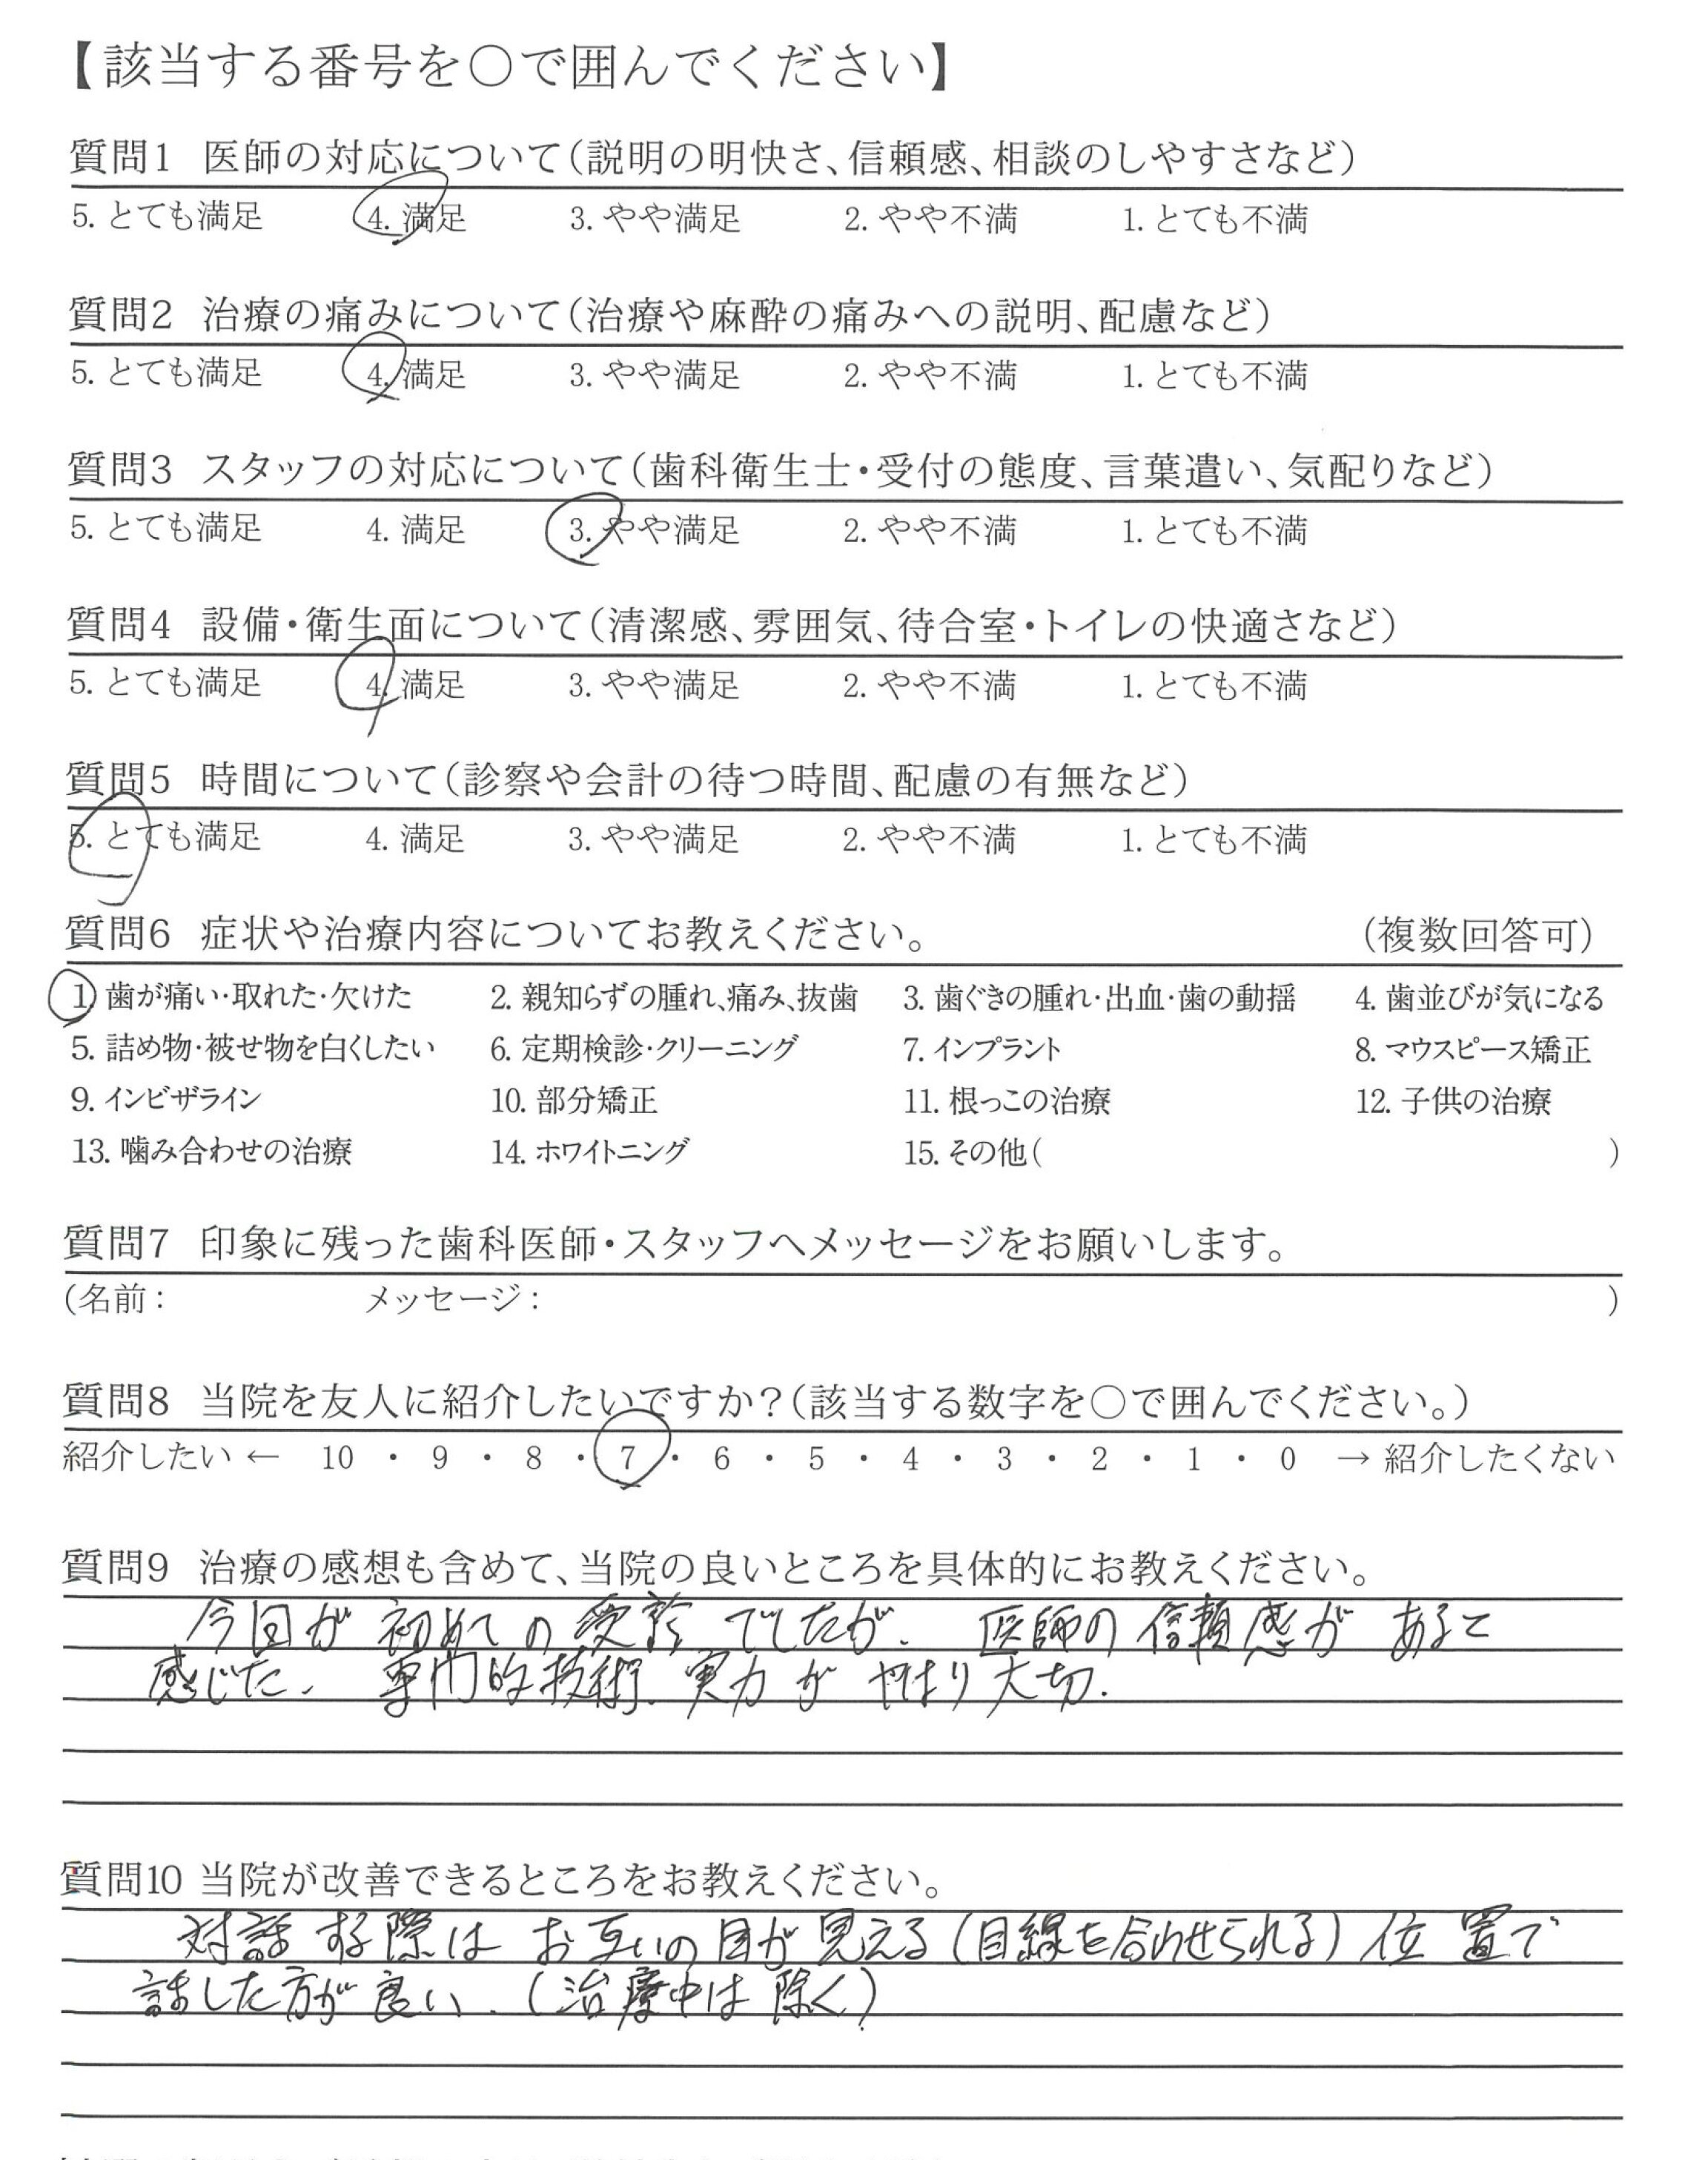 【該当する番号を○で囲んでください】
質問1 医師の対応について（説明の明快さ、信頼感、相談のしやすさなど）
5. とても満足 4. 満足 3. やや満足 2. やや不満 1. とても不満
質問2 治療の痛みについて（治療や麻酔の痛みへの説明、配慮など）
5. とても満足 4. 満足 3. やや満足 2. やや不満 1. とても不満
質問3 スタッフの対応について（歯科衛生士・受付の態度、言葉遣い、気配りなど）
5. とても満足 4. 満足 3. やや満足 2. やや不満 1. とても不満
質問4 設備・衛生面について（清潔感、雰囲気、待合室・トイレの快適さなど）
5. とても満足 4. 満足 3. やや満足 2. やや不満 1. とても不満
質問5 時間について（診察や会計の待つ時間、配慮の有無など）
5. とても満足 4. 満足 3. やや満足 2. やや不満 1. とても不満
質問6 症状や治療内容についてお教えください。 （複数回答可）
1. 歯が痛い・取れた・欠けた 2. 親知らずの腫れ、痛み、抜歯 3. 歯ぐきの腫れ・出血・歯の動揺 4. 歯並びが気になる
5. 詰め物・被せ物を白くしたい 6. 定期検診・クリーニング 7. インプラント 8. マウスピース矯正
9. インビザライン 10. 部分矯正 11. 根っこの治療 12. 子供の治療
13. 噛み合わせの治療 14. ホワイトニング 15. その他（ ）
質問7 印象に残った歯科医師・スタッフへメッセージをお願いします。
（名前： メッセージ： ）
質問8 当院を友人に紹介したいですか？（該当する数字を○で囲んでください。）
紹介したい ← 10 ・ 9 ・ 8 ・ 7 ・ 6 ・ 5 ・ 4 ・ 3 ・ 2 ・ 1 ・ 0 → 紹介したくない
質問9 治療の感想も含めて、当院の良いところを具体的にお教えください。
今回が初めての受診でしたが、医師の信頼感があると
感じた。専門的技術、実力がやはり大切。
質問10 当院が改善できるところをお教えください。
対話する際はお互いの目が見える（目線を合わせられる）位置で
話した方が良い。（治療中は除く）